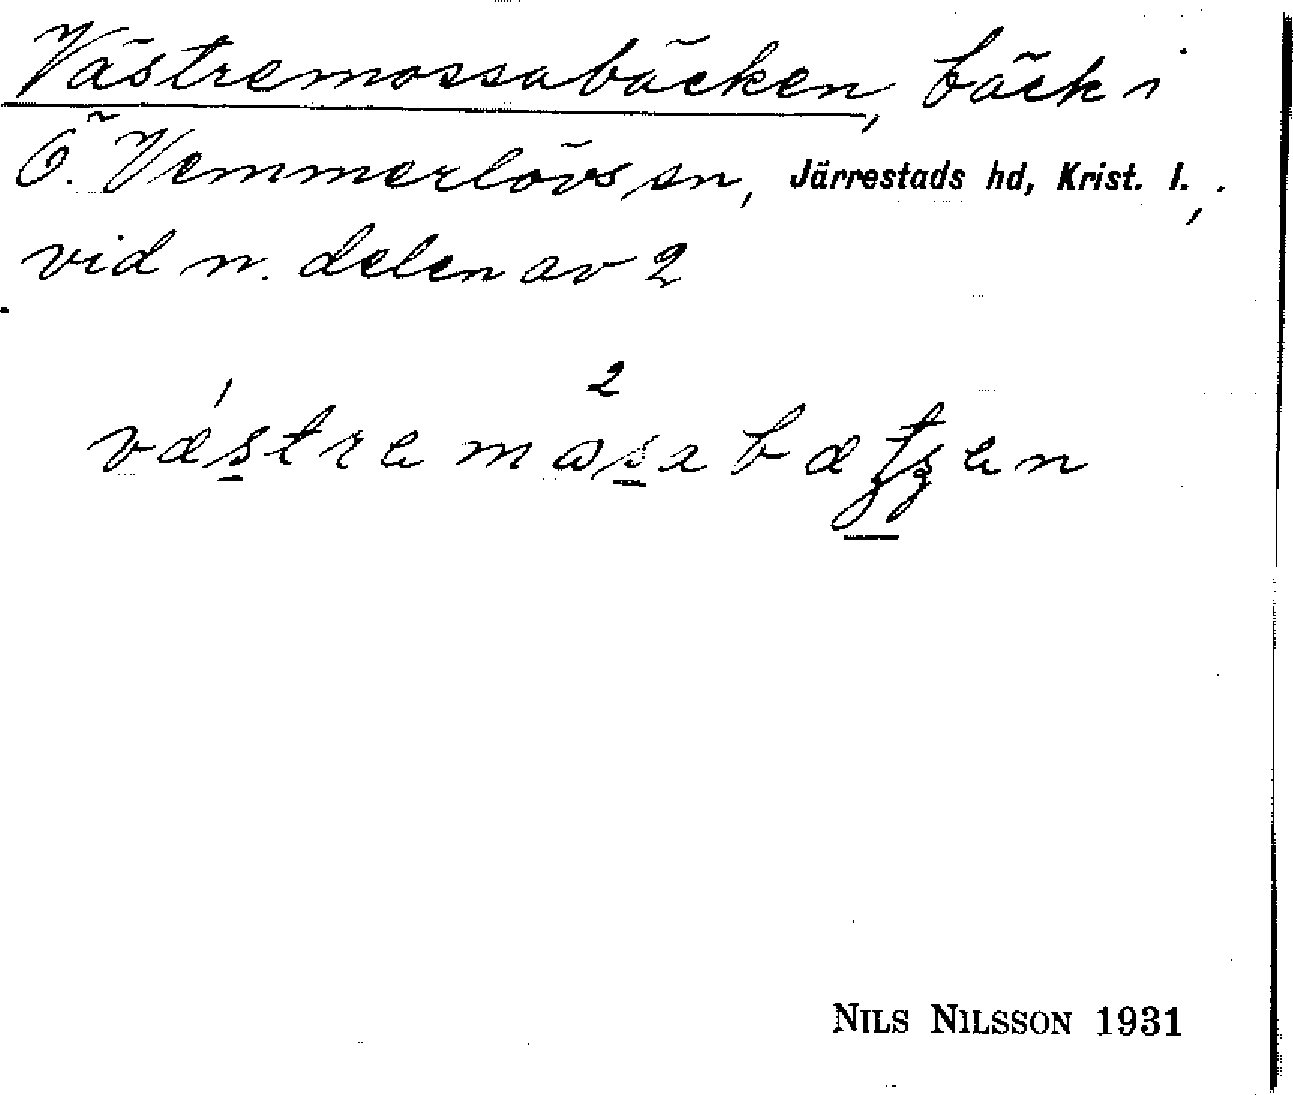 Västremossabäcken, bäck i
Ö. Vemmerlövs sn, Järrestads hd, Krist. l.,
vid n. delen av 2
NILS NILSSON 1931